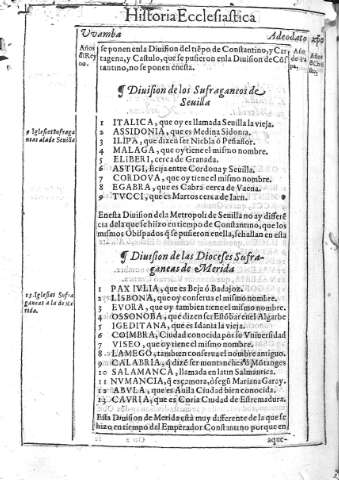 Historia Ecclesiastica
Vvamba
Adeodato
Años
d̃l Rey
no.
se ponen en la Diuision del tiẽpo de Constantino, y Car
tagena, y Castulo, que se pusieron en la Diuision de Cõs
tantino, no se ponen en esta.
¶ Diuision de los Sufraganeos de
Seuilla
9 Iglesias Sufraga
neos a la de Seuilla
1 ITALICA, que oy es llamada Seuilla la vieja.
2 ASSIDONIA, que es Medina Sidonia.
3 ILIPA, que dizen ser Niebla ò Peñaflor.
4 MALAGA, que oy tiene el mismo nombre.
5 ELIBERI, cerca de Granada.
6 ASTIGI, Ecija entre Cordoua y Seuilla.
7 CORDOVA, que oy tiene el mismo nombre.
8 EGABRA, que es Cabra cerca de Vaena.
9 TVCCI, que es Martos cerca de Iaen.
En esta Diuision de la Metropoli de Seuilla no ay differẽ
cia de la que se hizo en tiempo de Constantino, que los
mismos Obispados q̃ se pusieron en ella, se hallan en esta
¶ Diuision de las Dioceses Sufra-
ganeas de Merida
13 Iglesias Sufra
ganeas a la de Me
rida.
1 PAX IVLIA, que es Beja ò Badajoz.
2 LISBONA, que oy conserua el mismo nombre.
3 EVORA, que oy tambien tiene el mismo nombre.
4 OSSONOBA, que dizen ser Estõbar en el Algarbe
5 IGEDITANA, que es Idania la vieja.
6 COIMBRA, Ciudad conocida por su Vniuersidad
7 VISEO, que oy tiene el mismo nombre.
8 LAMEGO, tambien conserua el nombre antiguo.
9 CALABRIA, q̃ dizẽ ser
10 SALAMANCA, llamada en latin Salmantica.
11 NVMANCIA, q̃ es Zamora, ò segũ Mariana Garay.
12 ABVLA, que es Auila Ciudad bien conocida.
13 CAVRIA, que es Coria Ciudad de Estremadura.
Esta Diuision de Merida està muy diferente de la que se
hizo en tiempo del Emperador Constantino porque en
aque-